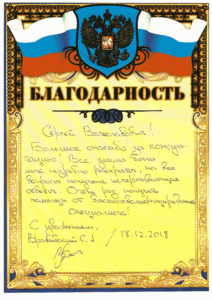 БЛАГОДАРНОСТЬ
Сергей Вячеславович!
Большое спасибо за консуль-
тацию! Все
мне подробно, на все
вопросы получены исчерпывающие
ответы. Очень рад получить
помощь от высококвалифицированного
специалиста!
С уважением,
18.12.2018